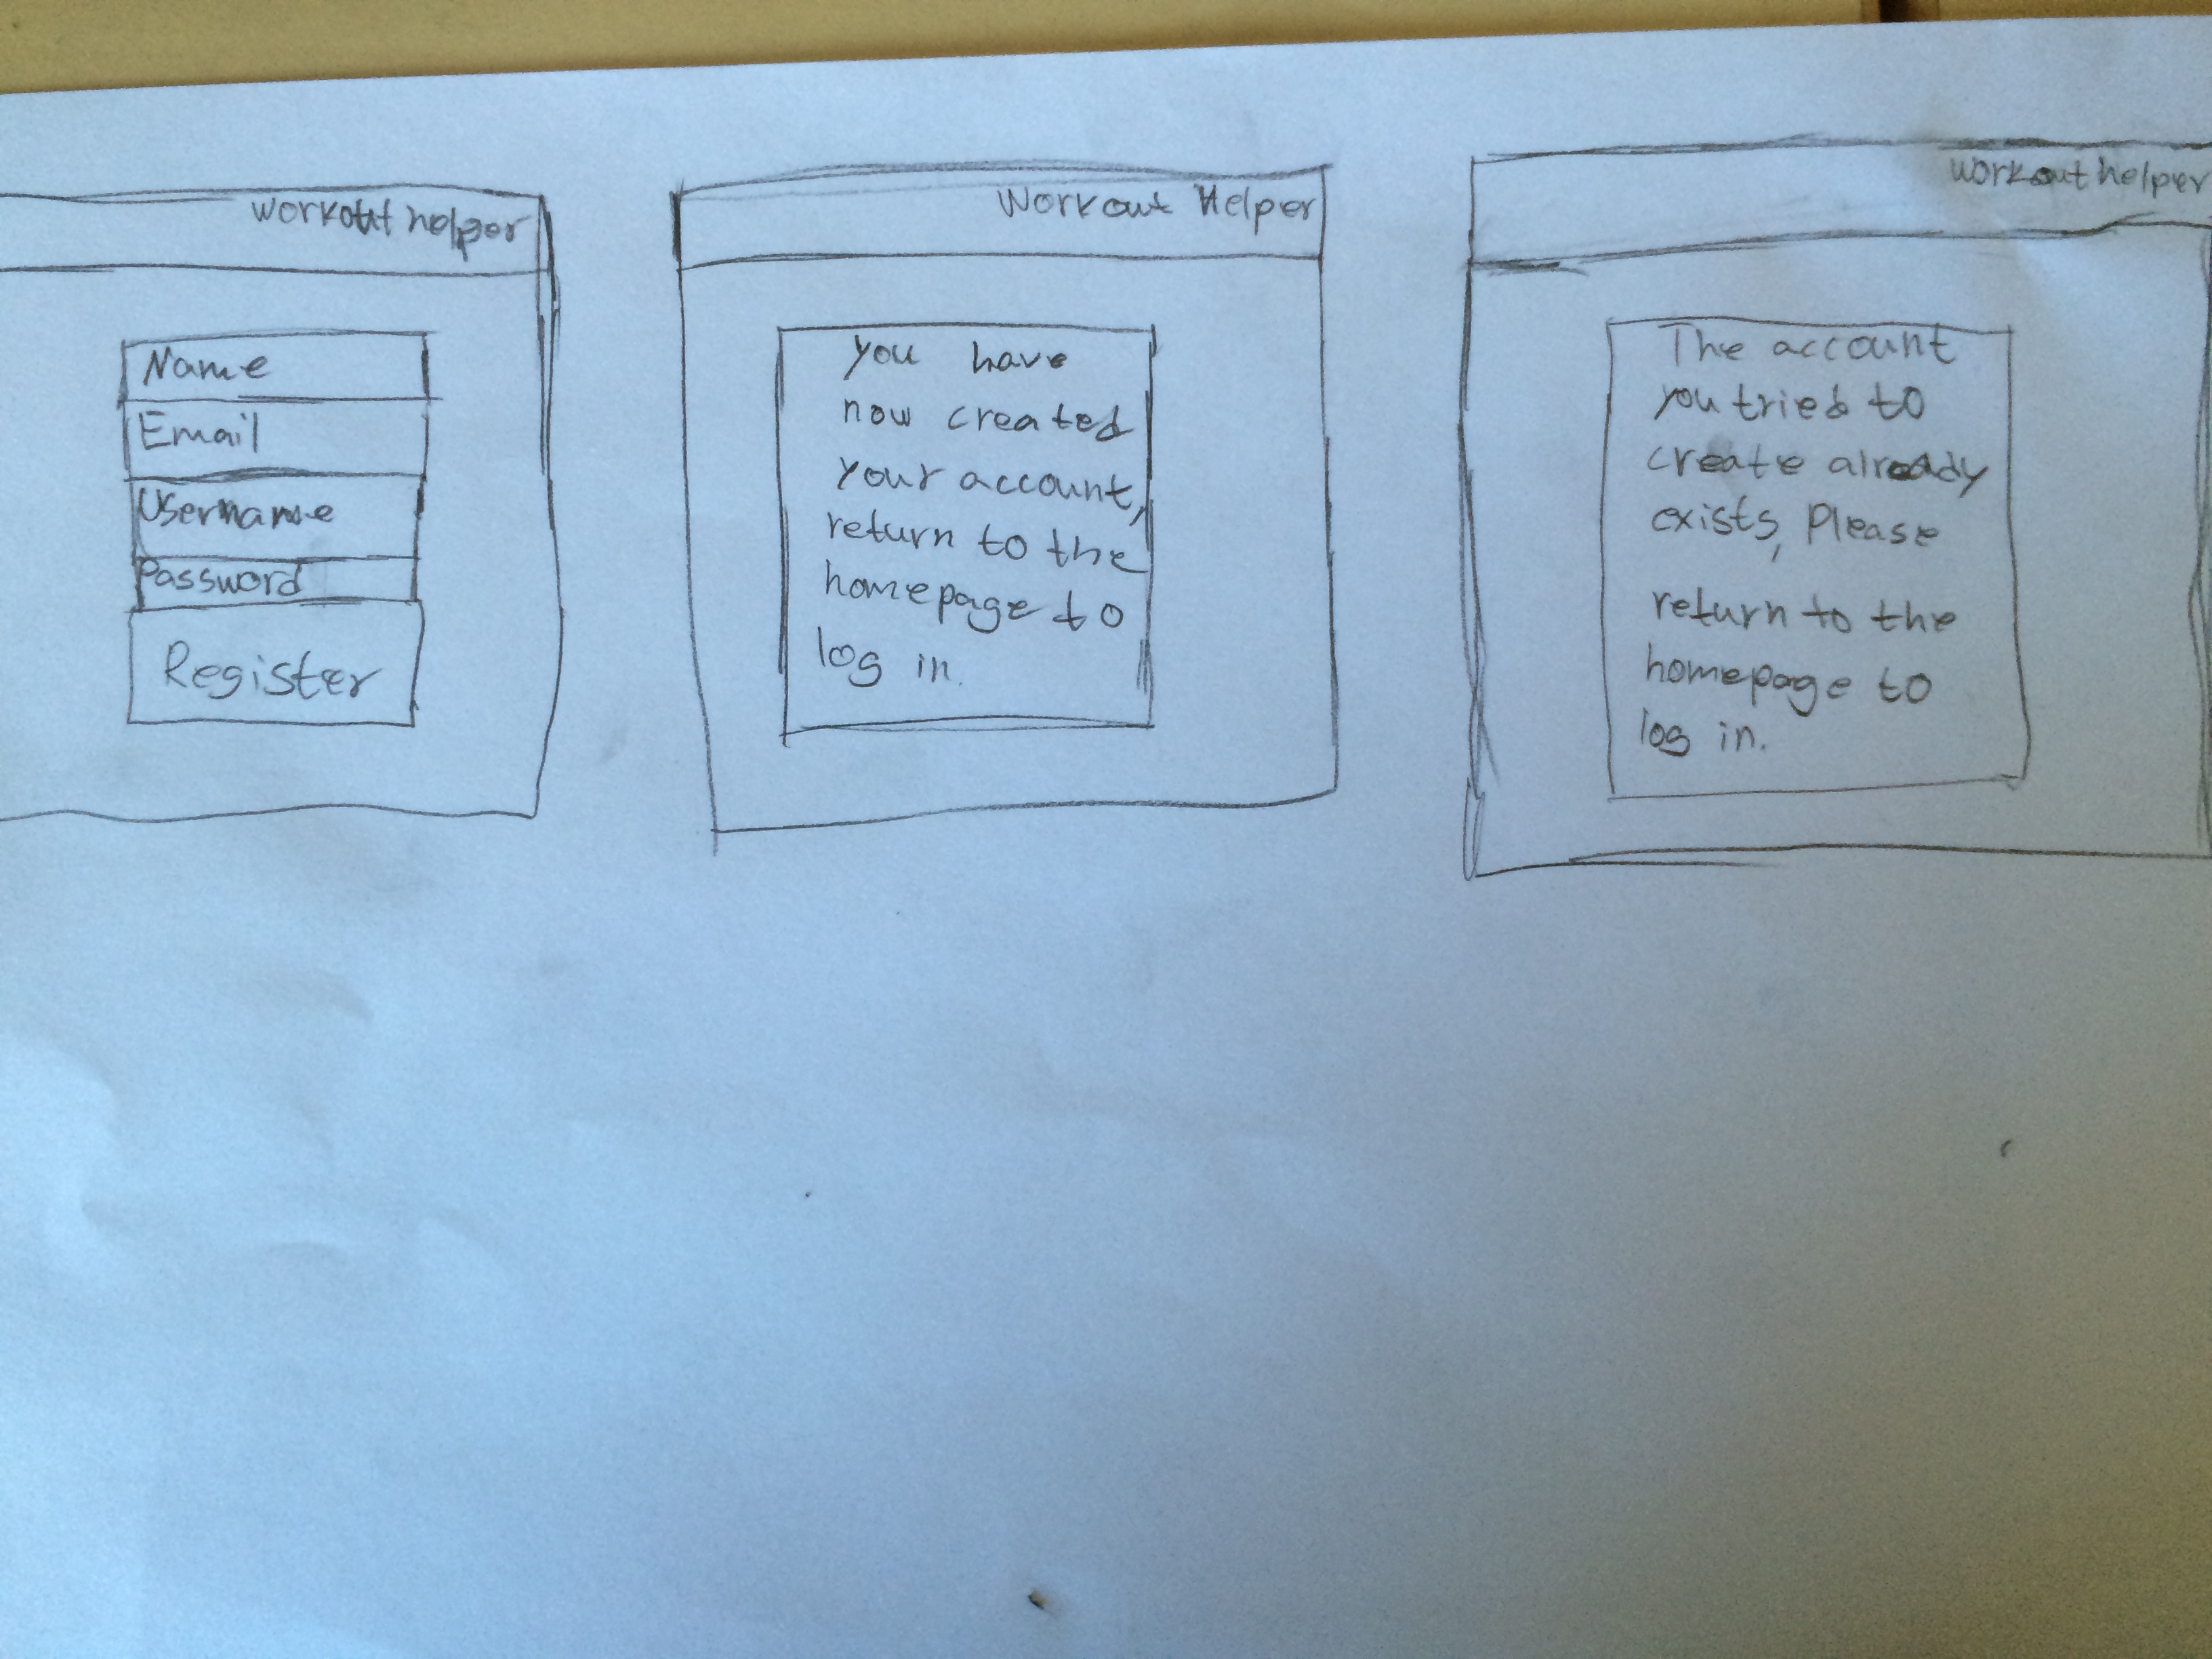 workout helper
Name
Email
Username
Password
Register
Workout Helper
you have
now created
your account,
return to the
homepage to
log in.
workout helper
The account
you tried to
create already
exists, Please
return to the
homepage to
log in.